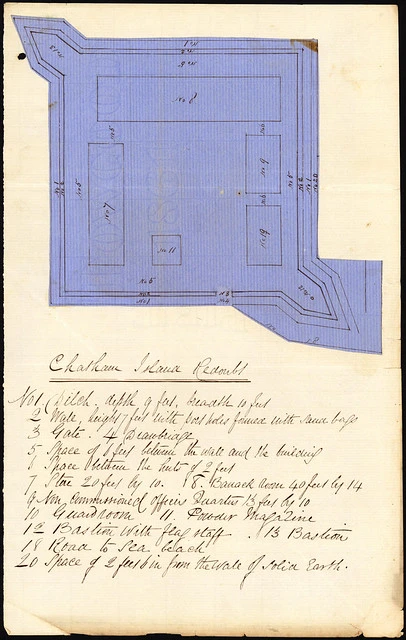 No 13
No 1
No 2
No 5
No 8
No 5
No 6
No 9
No 7
No 1
No 5
No 5
No 2
No 1
No 20
No 6
No 19
No 11
No 5
No 2
No 1
No 3
No 4
18
Chatham Island Redoubt
No 1 Ditch, depth 9 feet, breadth 10 feet
2 Wall, height 7 feet with loop holes formed with sand bags
3 Gate. 4 Drawbridge
5 Space of 8 feet between the wall and the building
6 Space between the huts of 2 feet
7 Store 20 feet by 10. 8. Barrack Room 40 feet by 14
9 Non, Commissioned officers Quarters 13 feet by 10
10 Guardroom 11. Powder Magazine
12 Bastion with flag staff. 13 Bastion
18 Road to Sea beach
20 Space of 2 feet 6 in from the wall of solid Earth.